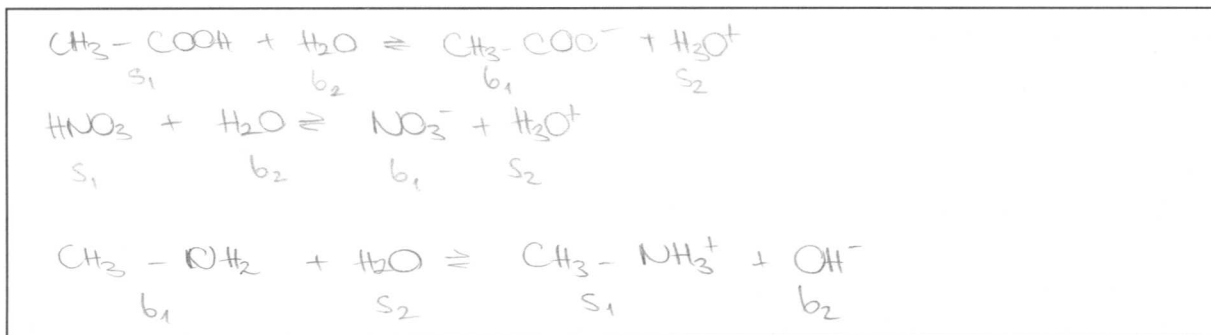 CH₃ – COOH + H₂O ⇌ CH₃ – COO⁻ + H₃O⁺
s₁ b₂ b₁ s₂
HNO₃ + H₂O ⇌ NO₃⁻ + H₃O⁺
s₁ b₂ b₁ s₂
CH₃ – NH₂ + H₂O ⇌ CH₃ – NH₃⁺ + OH⁻
b₁ s₂ s₁ b₂